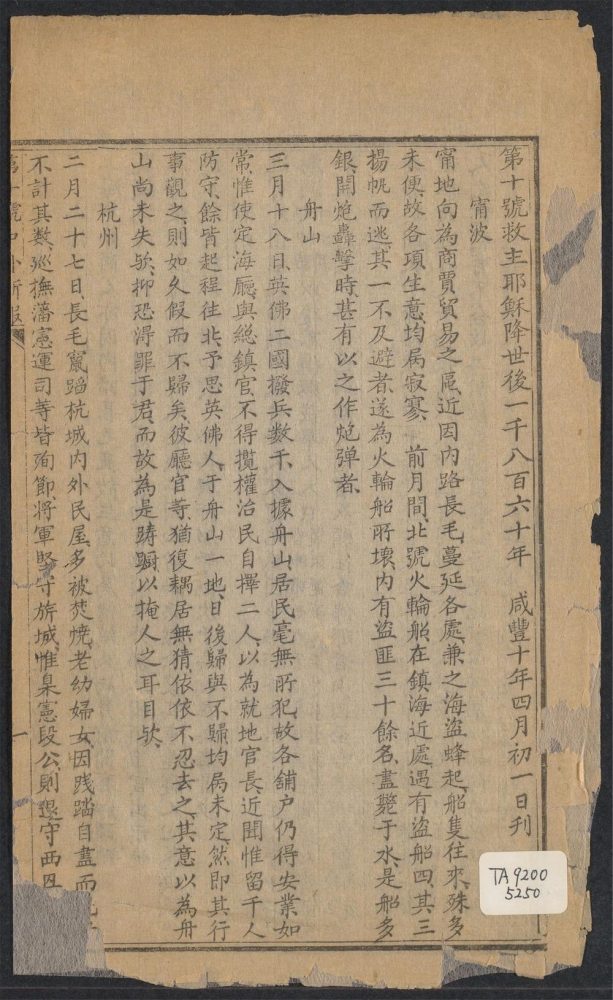 第十號救主耶穌降世後一千八百六十年　咸豐十年四月初一日刊
甯波
甯地向為商賈貿易之區近因內路長毛蔓延各處兼之海盜蜂起船隻往來殊多
未便故各項生意均屬寂寥　前月間北號火輪船在鎮海近處遇有盜船四其三
揚帆而逃其一不及避者遂為火輪船所壞內有盜匪三十餘名盡斃于水是船多
銀開炮轟擊時甚有以之作炮彈者
舟山
三月十八日英佛二國撥兵數千入據舟山居民毫無所犯故各舖户仍得安業如
常惟使定海廳與總鎮官不得攬權治民自擇二人以為就地官長近聞惟留千人
防守餘皆起程往北予思英佛人于舟山一地日後歸與不歸均屬未定然即其行
事觀之則如久假而不歸矣彼廳官等猶復耦居無猜依依不忍去之其意以為舟
山尚未失歟抑恐淂罪于君而故為是躊躕以掩人之耳目歟
杭州
二月二十七日長毛竄蹈杭城內外民屋多被焚燒老幼婦女因踐踏自盡而
不計其數巡撫藩憲運司等皆殉節將軍堅守旂城惟臬憲段公則退守西
第十號中外新報
一
TA 9200
5250